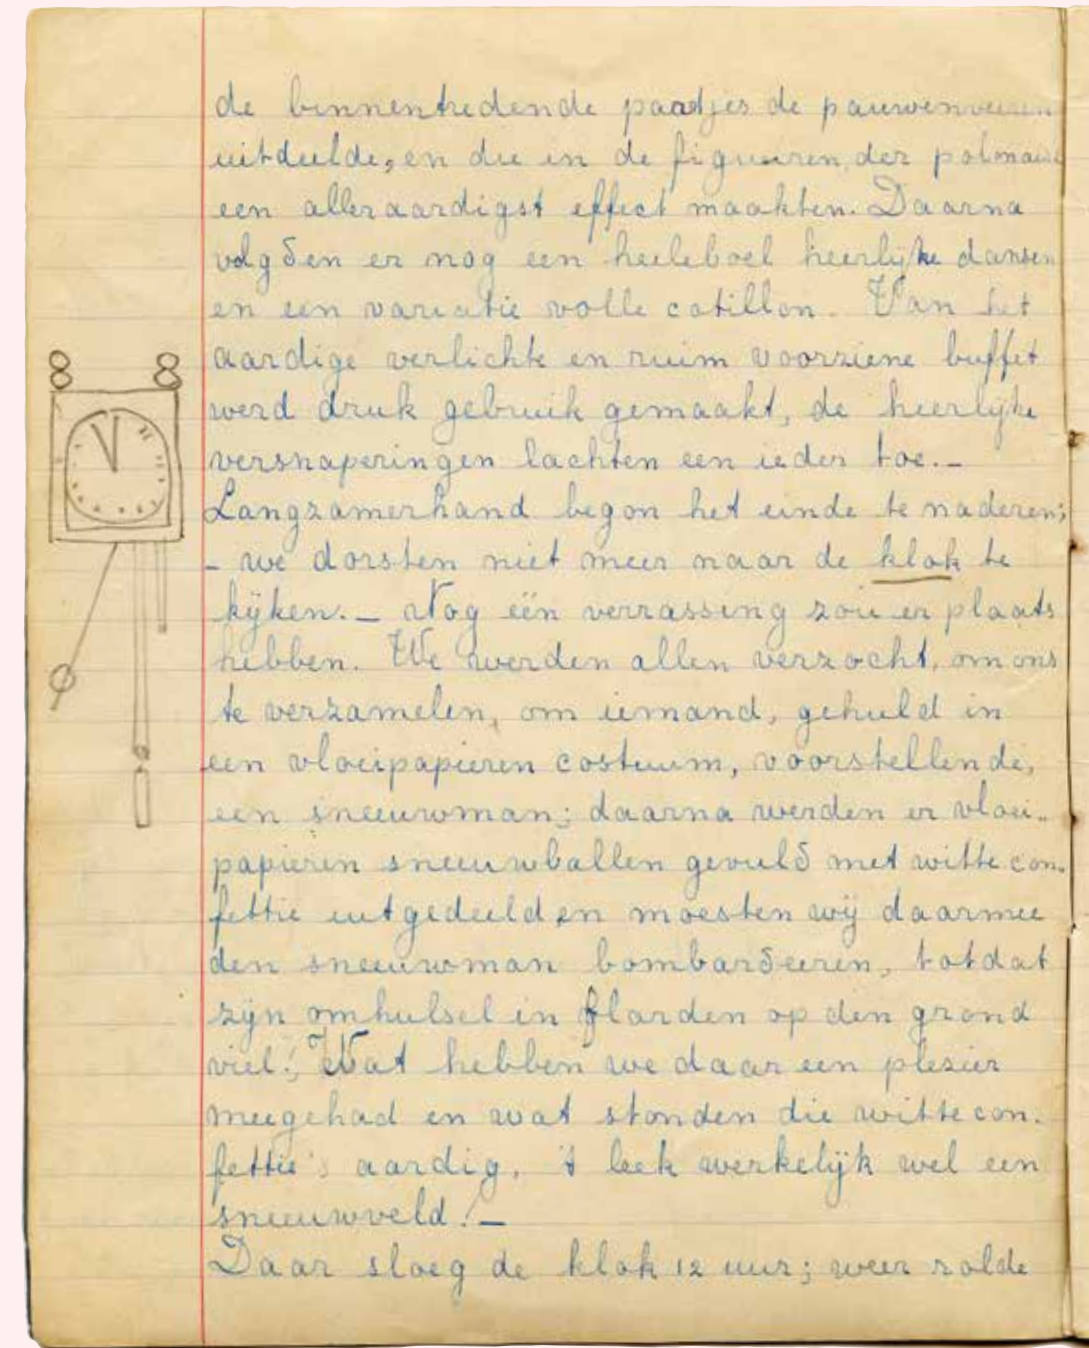 de binnentredende paartjes de pauwenveeren
uitdeelde, en die in de figuuren der polonaise
een alleraardigst effect maakten. Daarna
volgden er nog een heeleboel heerlijke dansen
en een variatie volle cotillon. Van het
aardige verlichte en ruim voorziene buffet
werd druk gebruik gemaakt, de heerlijke
versnaperingen lachten een ieder toe.–
Langzamerhand begon het einde te naderen;
– we dorsten niet meer naar de klok te
kijken.– Nog één verrassing zou er plaats
hebben. We werden allen verzocht, om ons
te verzamelen, om iemand, gehuld in
een vloeipapieren costuum, voorstellende,
een sneeuwman; daarna werden er vloei-
papieren sneeuwballen gevuld met witte con-
fettie uitgedeeld en moesten wij daarmee
den sneeuwman bombardeeren, totdat
zijn omhulsel in flarden op den grond
viel! Wat hebben we daar een plezier
meegehad en wat stonden die witte con-
fettie's aardig, 't leek werkelijk wel een
sneeuwveld!–
Daar sloeg de klok 12 uur; weer rolde